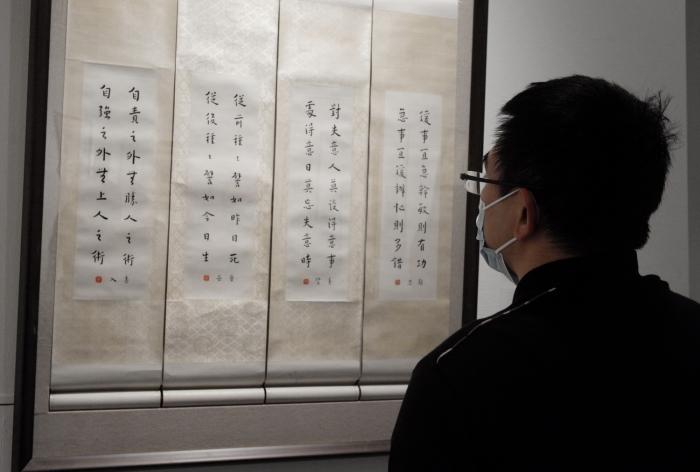 緩事宜急幹敏則有功
急事宜緩辦忙則多錯
對失意人莫談得意事
處得意日莫忘失意時
從前種々譬如昨日死
從後種々譬如今日生
自責之外無勝人之術
自強之外無上人之術